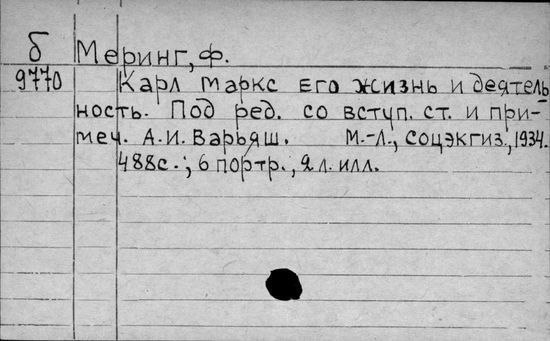 б Меринг, Ф.
9770 Карл Маркс Его жизнь и деятель
ность. Под ред. со вступ. ст. и при-
меч. А.И. Варьяш. М.-Л., Соцэкгиз., 1934.
488с.; 6 портр., 2 л. илл.